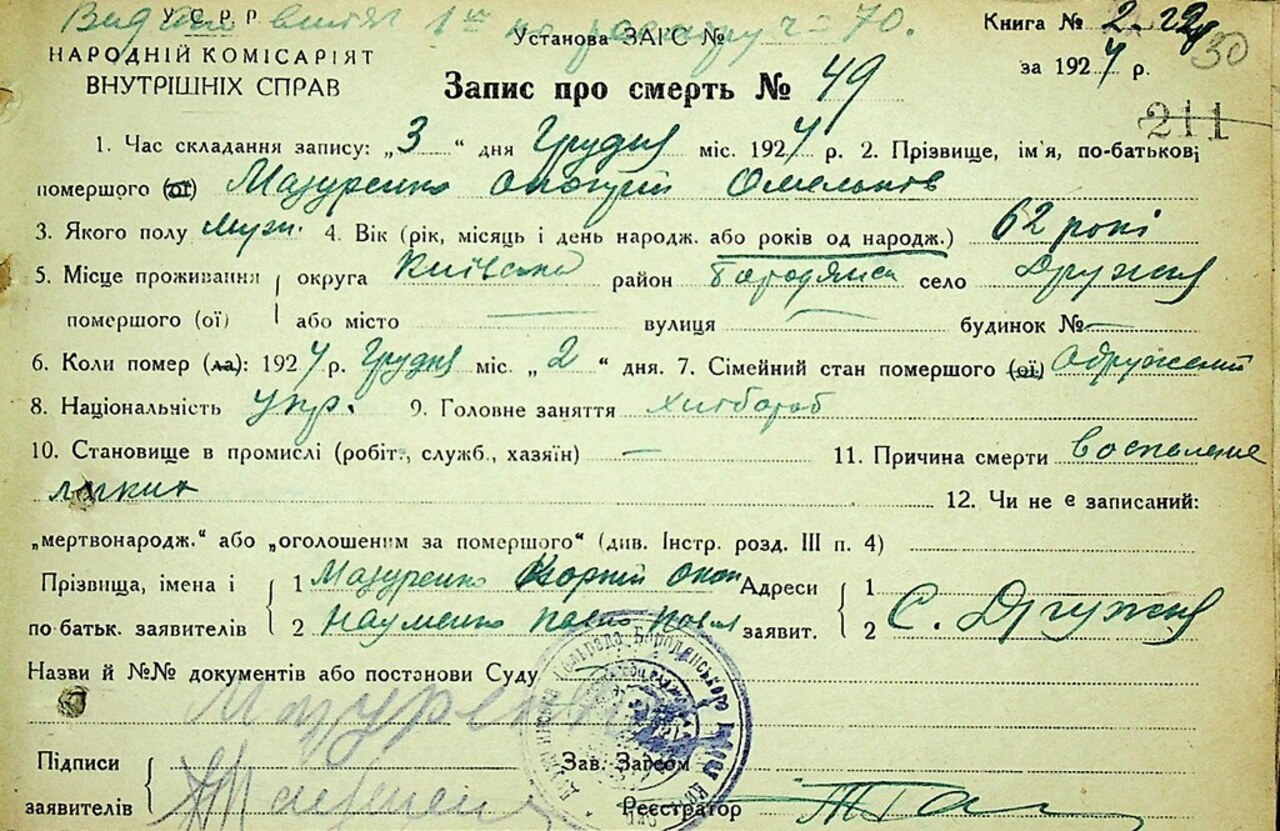 У С Р Р
НАРОДНІЙ КОМІСАРІЯТ
ВНУТРІШНІХ СПРАВ
Установа ЗАГС №
Книга № 2
за 1927 р.
30
211
Запис про смерть № 49
1. Час складання запису: „3“ дня Грудня міс. 1927 р. 2. Прізвище, ім'я, по-батькові
помершого (ої) Мазуренко Омельків
3. Якого полу муж. 4. Вік (рік, місяць і день народж. або років од народж.) 62 рокі
5. Місце проживання округа Київська район Бородянск село Дружня
помершого (ої) або місто — вулиця — будинок № —
6. Коли помер (ла): 1927 р. Грудня міс. „2“ дня. 7. Сімейний стан помершого (ої) Одружений
8. Національність укр. 9. Головне заняття хлібороб
10. Становище в промислі (робіт., служб., хазяїн) — 11. Причина смерти воспаление
12. Чи не є записаний:
„мертвонародж.“ або „оголошеним за помершого“ (див. Інстр. розд. III п. 4)
Прізвища, імена і 1 Мазуренко Корній Адреси 1
по батьк. заявителів 2 Науменко Павло Павл заявит. 2 С. Дружня
Назви й №№ документів або постанови Суду
Мазуренко
Підписи
Зав. Загсом
заявителів
Реєстратор